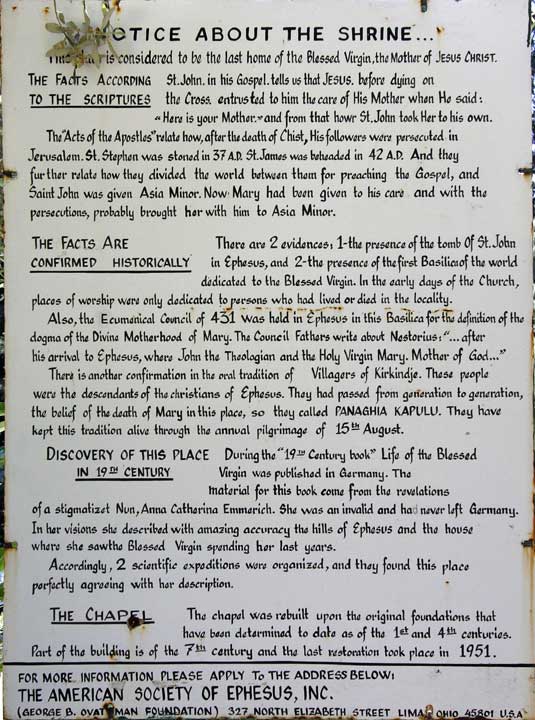 NOTICE ABOUT THE SHRINE...
This place is considered to be the last home of the Blessed Virgin, the Mother of JESUS CHRIST.
THE FACTS ACCORDING St.John. in his Gospel. tells us that JESUS. before dying on
TO THE SCRIPTURES the Cross. entrusted to him the care of His Mother when He said:
"Here is your Mother." and from that howr St.John took Her to his own.
The "Acts of the Apostles" relate how, after the death of Chist, His followers were persecuted in
Jerusalem. St. Stephen was stoned in 37 A.D. St.James was beheaded in 42 A.D. And they
further relate how they divided the world between them for preaching the Gospel, and
Saint John was given Asia Minor. Now Mary had been given to his care and with the
persecutions, probably brought her with him to Asia Minor.
THE FACTS ARE There are 2 evidences; 1-the presence of the tomb Of St.John
CONFIRMED HISTORICALLY in Ephesus, and 2-the presence of the first Basilica of the world
dedicated to the Blessed Virgin. In the early days of the Church,
places of worship were only dedicated to persons who had lived or died in the locality.
Also, the Ecumenical Council of 431 was held in Ephesus in this Basilica for the definition of the
dogma of the Divine Motherhood of Mary. The Council Fathers write about Nestorius: "... after
his arrival to Ephesus, where John the Theologian and the Holy Virgin Mary. Mother of God..."
There is another confirmation in the oral tradition of Villagers of Kirkindje. These people
were the descendants of the christians of Ephesus. They had passed from generation to generation,
the belief of the death of Mary in this place, so they called PANAGHIA KAPULU. They have
kept this tradition alive through the annual pilgrimage of 15th August.
DISCOVERY OF THIS PLACE During the "19TH Century book" Life of the Blessed
IN 19TH CENTURY Virgin was published in Germany. The
material for this book come from the revelations
of a stigmatizet Nun, Anna Catherina Emmerich. She was an invalid and had never left Germany.
In her visions she described with amazing accuracy the hills of Ephesus and the house
where she saw the Blessed Virgin spending her last years.
Accordingly, 2 scientific expeditions were organized, and they found this place
perfectly agreeing with her description.
THE CHAPEL The chapel was rebuilt upon the original foundations that
have been determined to date as of the 1st and 4th centuries.
Part of the building is of the 7th century and the last restoration took place in 1951.
FOR MORE INFORMATION PLEASE APPLY TO THE ADDRESS BELOW:
THE AMERICAN SOCIETY OF EPHESUS, INC.
(GEORGE B. FOUNDATION) 327 NORTH ELIZABETH STREET LIMA, OHIO 45801 U.S.A